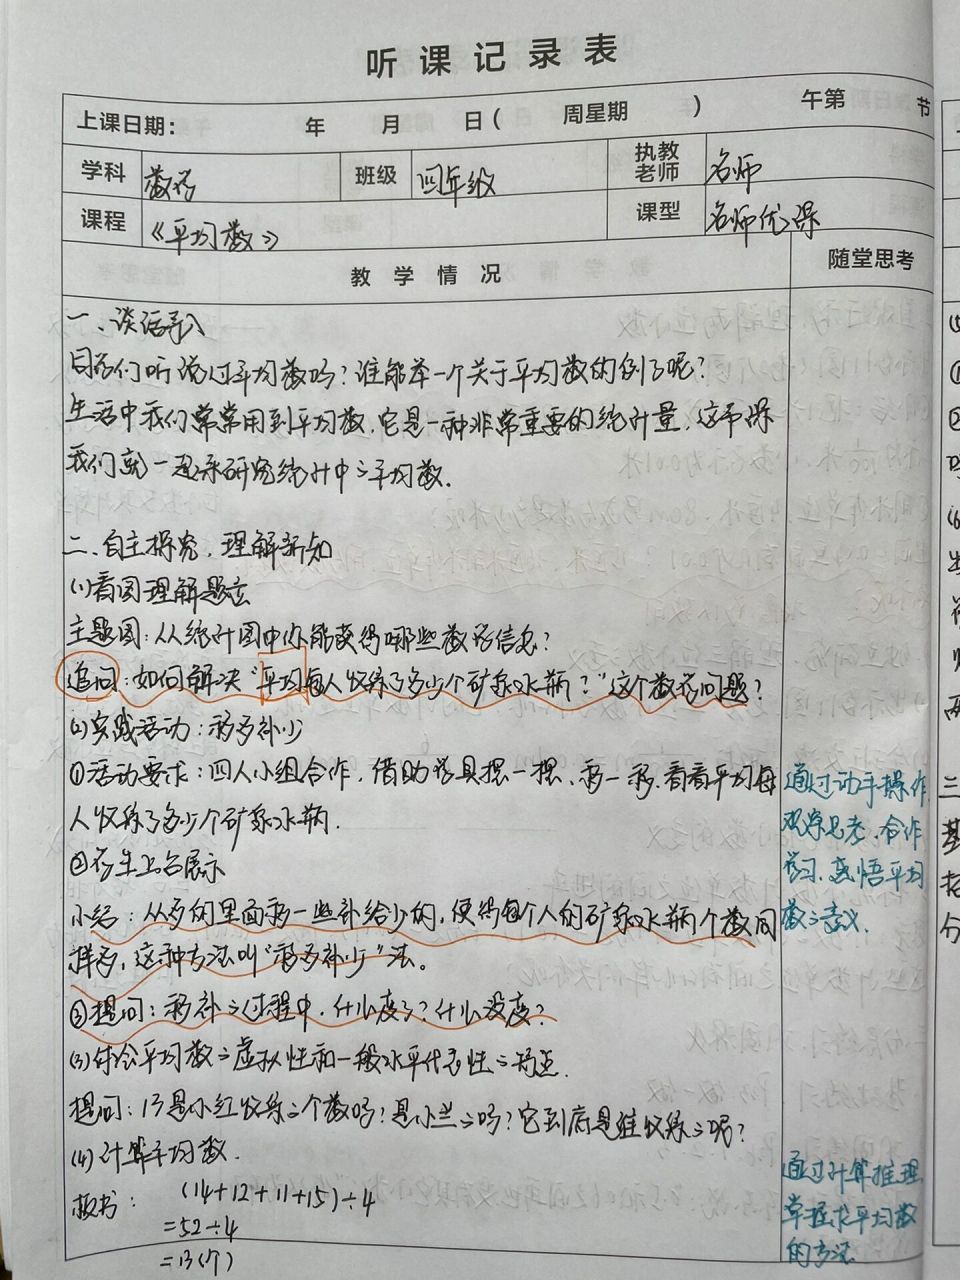 听课记录表
上课日期： 年 月 日( 周星期 ) 午第 节
学科 数学 班级 四年级 执教老师 名师
课程 《平均数》 课型 名师优课
教学情况 随堂思考
一、谈话导入
同学们听说过平均数吗？谁能举一个关于平均数的例子呢？
生活中我们常常用到平均数，它是一种非常重要的统计量，这节课
我们就一起来研究统计中的平均数.
二、自主探究，理解新知
(1)看图理解题意
主题图：从统计图中你能获得哪些数学信息？
追问：如何解决“平均每人收集了多少个矿泉水瓶？”这个数学问题？
(2)实践活动：移多补少
①活动要求：四人小组合作，借助学具摆一摆、移一移，看看平均每
人收集了多少个矿泉水瓶.
②学生上台展示
小结：从多的里面移一些补给少的，使得每个人的矿泉水瓶个数同
样多，这种方法叫“移多补少”法。
③提问：移补的过程中，什么变了？什么没变？
(3)体会平均数的虚拟性和一般水平代表性的特点.
提问：13是小红收集的个数吗？是小兰的吗？它到底是谁收集的呢？
(4)计算平均数.
板书： (14+12+11+15)÷4
=52÷4
=13(个)
通过动手操作，
观察思考，合作
学习，感悟平均
数的意义.
通过计算推理
掌握求平均数
的方法
三
基
分